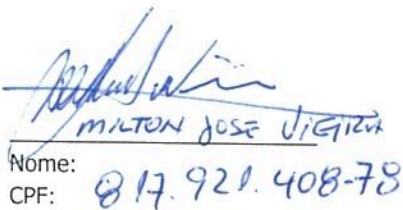 MILTON JOSE VIEIRA
Nome:
CPF: 817.921.408-78